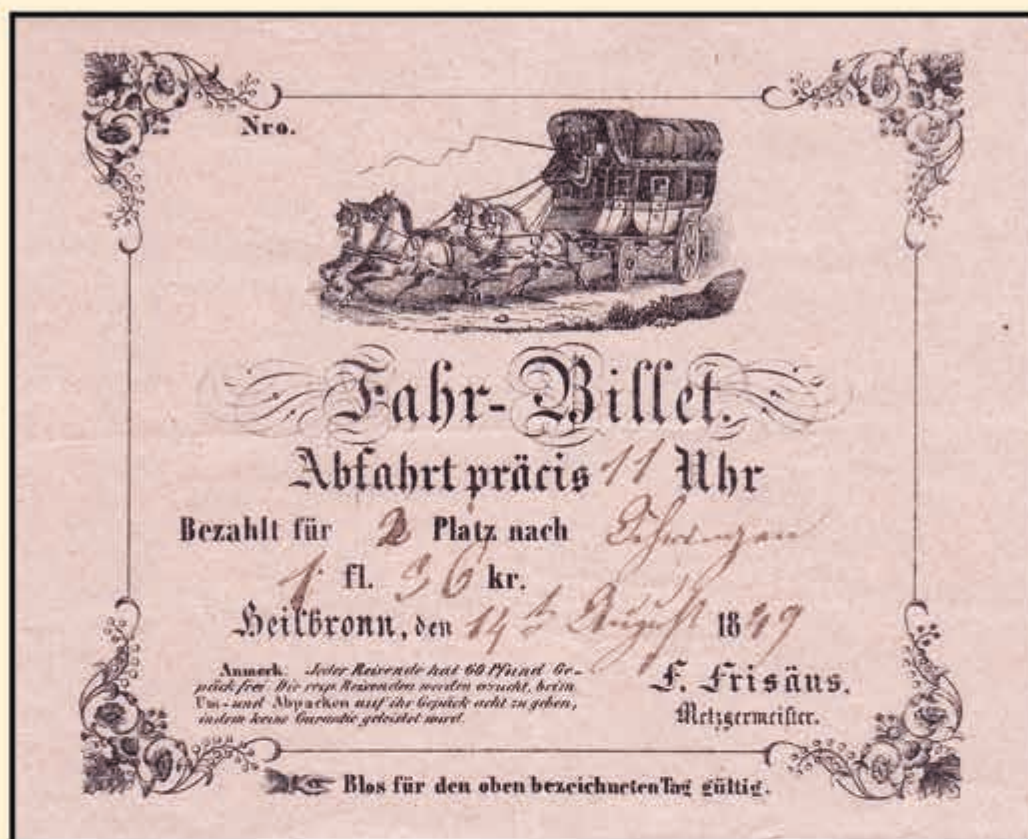 Nro.
Fahr-Billet.
Abfahrt präcis 11 Uhr
Bezahlt für 2 Platz nach Öhringen
1 fl. 36 kr.
Heilbronn, den 14t August 1849
Anmerk. Jeder Reisende hat 60 Pfund Ge-
päck frei. Die resp. Reisenden werden ersucht, beim
Um- und Abpacken auf ihr Gepäck acht zu geben,
indem keine Garantie geleistet wird.
F. Frisäus,
Metzgermeister.
Blos für den oben bezeichneten Tag gültig.